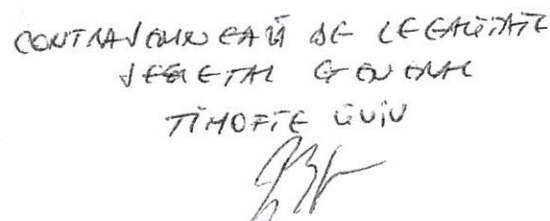 CONTRASEMNEAZĂ DE LEGALITATE
SECRETAR GENERAL
TIMOFTE LIVIU